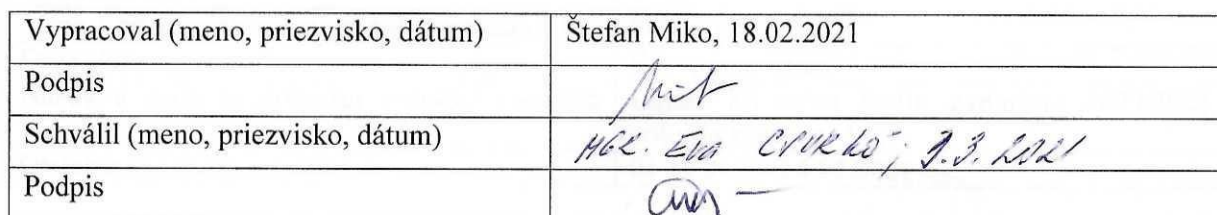 Vypracoval (meno, priezvisko, dátum) Štefan Miko, 18.02.2021
Podpis
Schválil (meno, priezvisko, dátum) MGR. Eva
Podpis